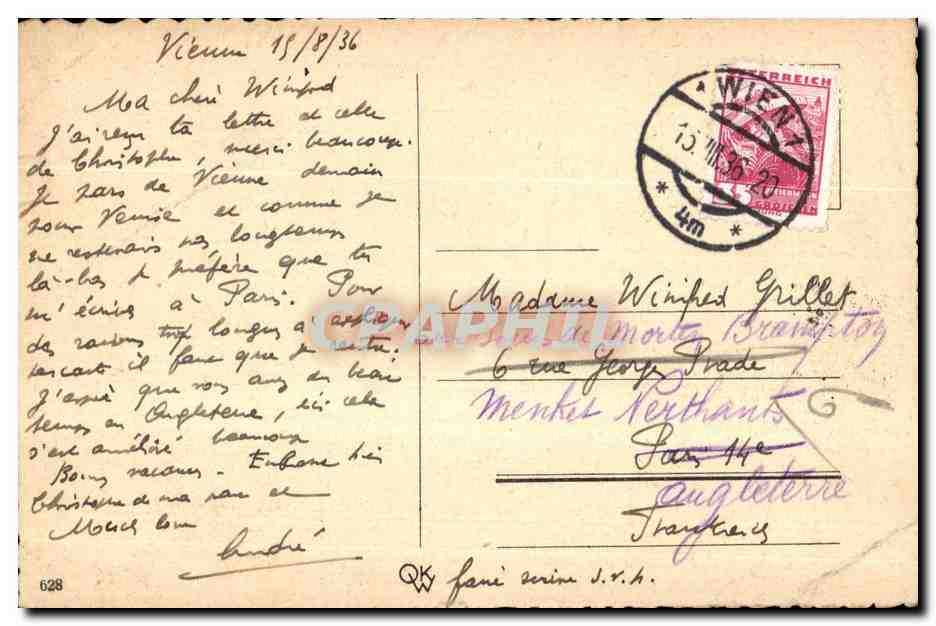 Vienne 15/8/36
Ma chère Winifred
J'ai reçu ta lettre et celle
de Christophe, merci beaucoup.
Je pars de Vienne demain
pour Venise et comme je
ne resterais pas longtemps
là-bas je préfère que tu
m'écrives à Paris. Pour
des raisons trop longues à expliquer
il faut que je rentre.
J'espère que vous avez du beau
temps en Angleterre, ici cela
s'est amélioré beaucoup
Bonnes vacances. Embrasse bien
Christophe de ma part et
André
628
QKW
faire suivre s.v.p.
ÖSTERREICH
WIEN 1
15.VIII.36 20
* 4m *
GROSCHEN
CPAPHIL
Madame Winifred Grillet
Brampton
6 rue Georges Prade
Market Northants
Paris 14e
Angleterre
Frankreich